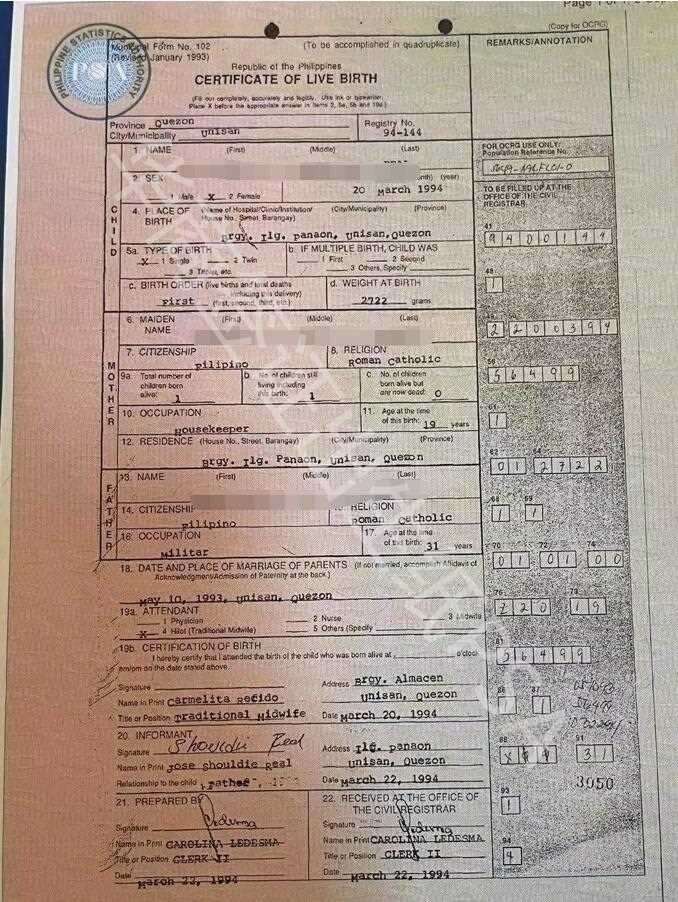 (Copy for OCRG)
Municipal Form No. 102
(Revised January 1993)
(To be accomplished in quadruplicate)
REMARKS/ANNOTATION
PHILIPPINE STATISTICS AUTHORITY
PSA
Republic of the Philippines
CERTIFICATE OF LIVE BIRTH
(Fill out completely, accurately and legibly. Use ink or typewriter.
Place X before the appropriate answer in items 2, 5a, 5b and 19a.)
Province Quezon
City/Municipality Unisan
Registry No.
94-144
FOR OCRG USE ONLY:
Population Reference No.
TO BE FILLED UP AT THE
OFFICE OF THE CIVIL
REGISTRAR
CHILD
1. NAME (First) (Middle) (Last)
2. SEX
1 Male X 2 Female
(year)
20 March 1994
4. PLACE OF BIRTH (Name of Hospital/Clinic/Institution/ House No., Street, Barangay) (City/Municipality) (Province)
Brgy. Ilg. Panaon, Unisan, Quezon
5a. TYPE OF BIRTH
X 1 Single 2 Twin
3 Triplet, etc.
b. IF MULTIPLE BIRTH, CHILD WAS
1 First 2 Second
3 Others, Specify
c. BIRTH ORDER (live births and fetal deaths including this delivery)
First (first, second, third, etc.)
d. WEIGHT AT BIRTH
2722 grams
MOTHER
6. MAIDEN NAME (First) (Middle) (Last)
7. CITIZENSHIP
Filipino
8. RELIGION
Roman Catholic
9a. Total number of children born alive: 1
b. No. of children still living including this birth: 1
c. No. of children born alive but are now dead: 0
10. OCCUPATION
Housekeeper
11. Age at the time of this birth: 19 years
12. RESIDENCE (House No., Street, Barangay) (City/Municipality) (Province)
Brgy. Ilg. Panaon, Unisan, Quezon
FATHER
13. NAME (First) (Middle) (Last)
14. CITIZENSHIP
Filipino
15. RELIGION
Roman Catholic
16. OCCUPATION
Militar
17. Age at the time of this birth: 31 years
18. DATE AND PLACE OF MARRIAGE OF PARENTS (If not married, accomplish Affidavit of
Acknowledgment/Admission of Paternity at the back.)
May 10, 1993, Unisan, Quezon
19a. ATTENDANT
1 Physician 2 Nurse 3 Midwife
X 4 Hilot (Traditional Midwife) 5 Others (Specify
19b. CERTIFICATION OF BIRTH
I hereby certify that I attended the birth of the child who was born alive at o'clock
am/pm on the date stated above.
Signature
Address Brgy. Almacen
Unisan, Quezon
Name in Print Carmelita Refido
Title or Position Traditional Midwife
Date March 20, 1994
20. INFORMANT
Signature Shouldie Real
Address Ilg. Panaon
Unisan, Quezon
Name in Print Jose Shouldie Real
Relationship to the child Father
Date March 22, 1994
21. PREPARED BY
Signature
Name in Print CAROLINA LEDESMA
Title or Position CLERK II
Date March 22, 1994
22. RECEIVED AT THE OFFICE OF
THE CIVIL REGISTRAR
Signature
Name in Print CAROLINA LEDESMA
Title or Position CLERK II
Date March 22, 1994
41
9400144
48
1
220394
56
56499
61
1
62 64
01 2722
68 69
1 1
70 72 74
01 01 00
76 79
220 19
81
56499
86 87
1 1
88 91
31
3050
93
1
94
4